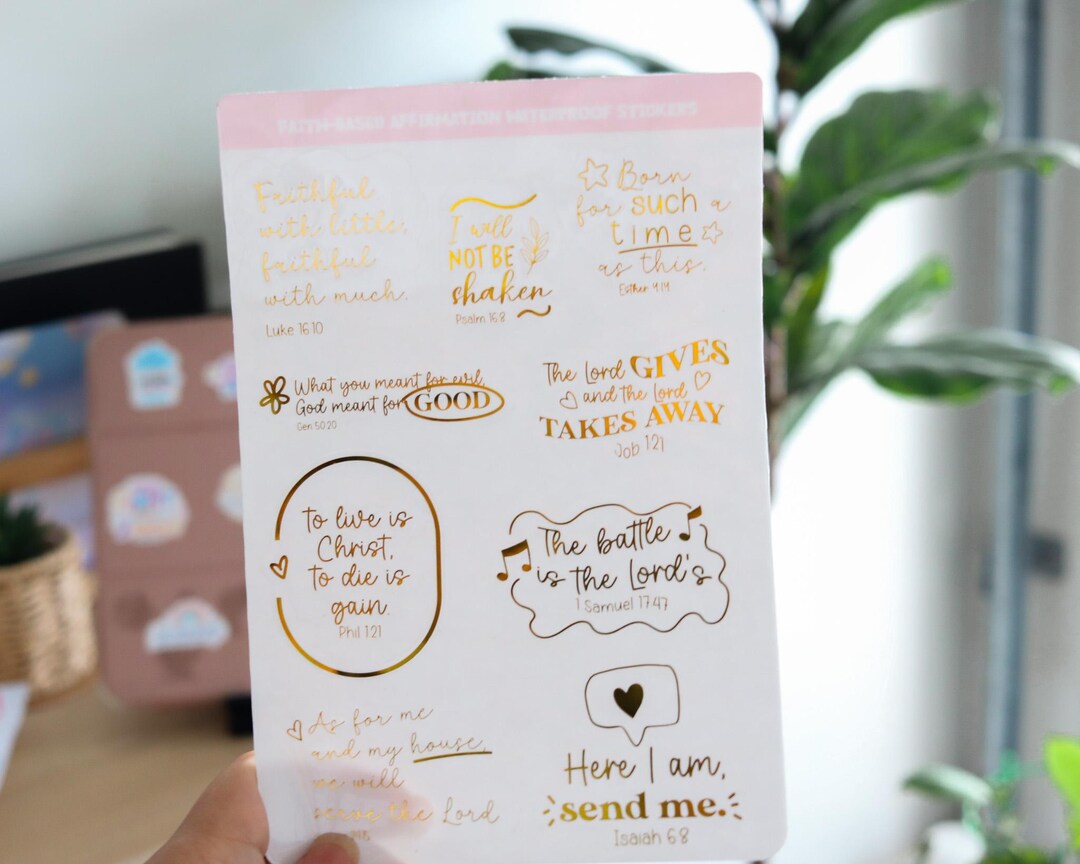 FAITH-BASED AFFIRMATION WATERPROOF STICKERS
Faithful
with little,
faithful
with much.
Luke 16:10
I will
NOT BE
shaken
Psalm 16:8
Born
for such a
time
as this.
Esther 4:14
What you meant for evil,
God meant for GOOD
Gen 50:20
The Lord GIVES
and the Lord
TAKES AWAY
Job 1:21
to live is
Christ,
to die is
gain.
Phil 1:21
The battle
is the Lord's
1 Samuel 17:47
As for me
and my house,
we will
serve the Lord
Here I am,
send me.
Isaiah 6:8